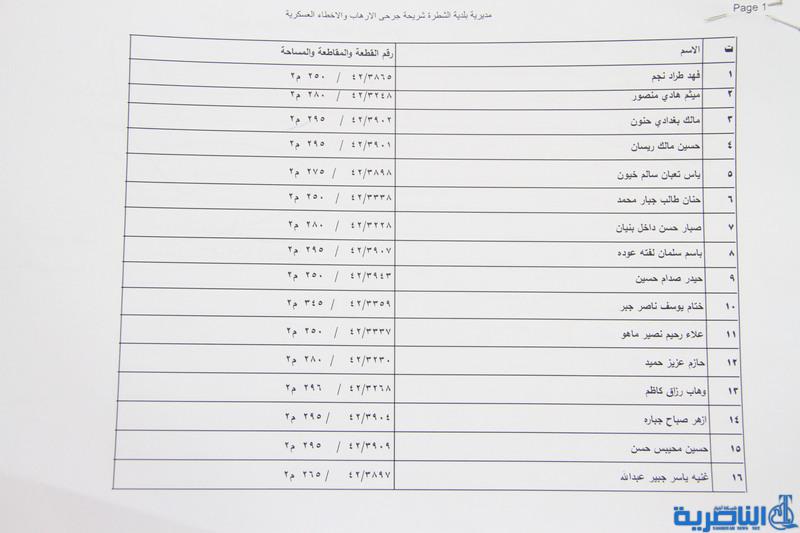 Page 1
مديرية بلدية الشطرة شريحة جرحى الارهاب والاخطاء العسكرية
ت الاسم رقم القطعة والمقاطعة والمساحة
١ فهد طراد نجم ٤٢/٣٨٦٥ / ٢٥٠ م٢
٢ ميثم هادي منصور ٤٢/٣٢٤٨ / ٢٨٠ م٢
٣ مالك بغدادي حنون ٤٢/٣٩٠٢ / ٢٩٥ م٢
٤ حسين مالك ريسان ٤٢/٣٩٠١ / ٢٩٥ م٢
٥ ياس تعبان سالم خيون ٤٢/٣٨٩٨ / ٢٧٥ م٢
٦ حنان طالب جبار محمد ٤٢/٣٣٣٨ / ٢٥٠ م٢
٧ صبار حسن داخل بنيان ٤٢/٣٢٢٨ / ٢٨٠ م٢
٨ باسم سلمان لفته عوده ٤٢/٣٩٠٧ / ٢٩٥ م٢
٩ حيدر صدام حسين ٤٢/٣٩٤٣ / ٢٥٠ م٢
١٠ ختام يوسف ناصر جبر ٤٢/٣٣٥٩ / ٣٤٥ م٢
١١ علاء رحيم نصير ماهو ٤٢/٣٣٣٧ / ٢٥٠ م٢
١٢ حازم عزيز حميد ٤٢/٣٢٣٠ / ٢٨٠ م٢
١٣ وهاب رزاق كاظم ٤٢/٣٢٦٨ / ٢٩٦ م٢
١٤ ازهر صباح جباره ٤٢/٣٩٠٤ / ٢٩٥ م٢
١٥ حسين محيبس حسن ٤٢/٣٩٠٩ / ٢٩٥ م٢
١٦ غنيه ياسر جبير عبدالله ٤٢/٣٨٩٧ / ٢٦٥ م٢
شبكة اخبار
الناصرية
NASIRIYAH NEWS NET